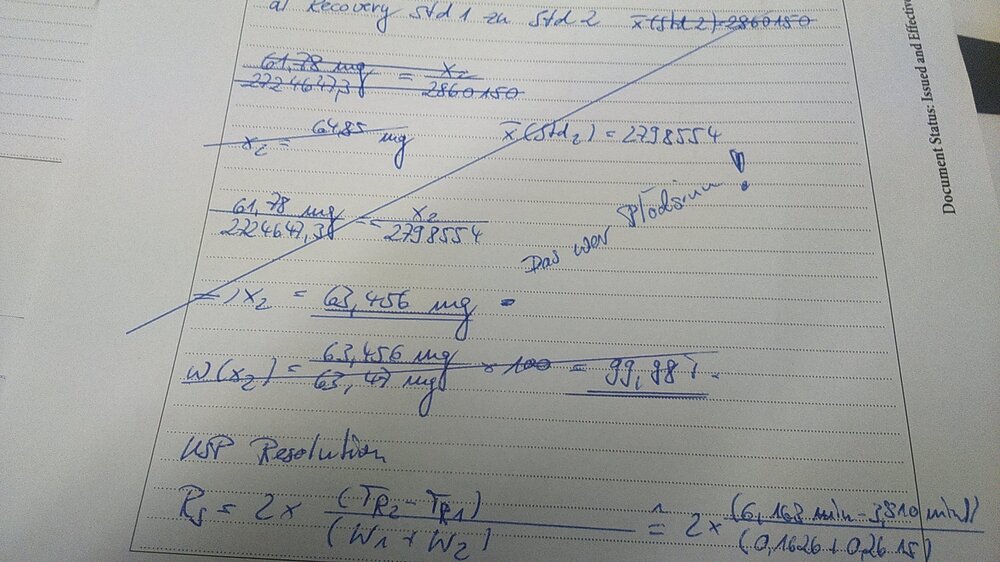 a) Recovery Std 1 zu Std 2 x̄(Std 2) = 2860150
61,78 mg / 2724647,38 = x₂ / 2860150
x₂ = 64,85 mg
x̄(Std₂) = 2798554
61,78 mg / 2724647,38 = x₂ / 2798554
Das war Plödsinn!
=> x₂ = 63,456 mg
w(x₂) = 63,456 mg / 63,47 mg × 100 = 99,98%
USP Resolution
Rs = 2 × (TR2 - TR1) / (W1 + W2) ≙ 2 × (6,163 min - 3,810 min) / (0,1626 + 0,2615)
Document Status: Issued and Effective